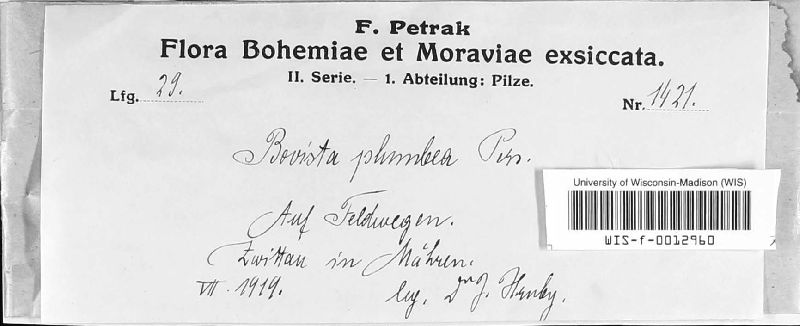 F. Petrak
Flora Bohemiae et Moraviae exsiccata.
II. Serie. — 1. Abteilung: Pilze.
Lfg. 29.
Nr. 1421.
Bovista plumbea Pers.
University of Wisconsin-Madison (WIS)
WIS-f-0012960
Auf Feldwegen.
Zwittau in Mähren.
VII. 1919.
leg. Dr. J. Hruby.